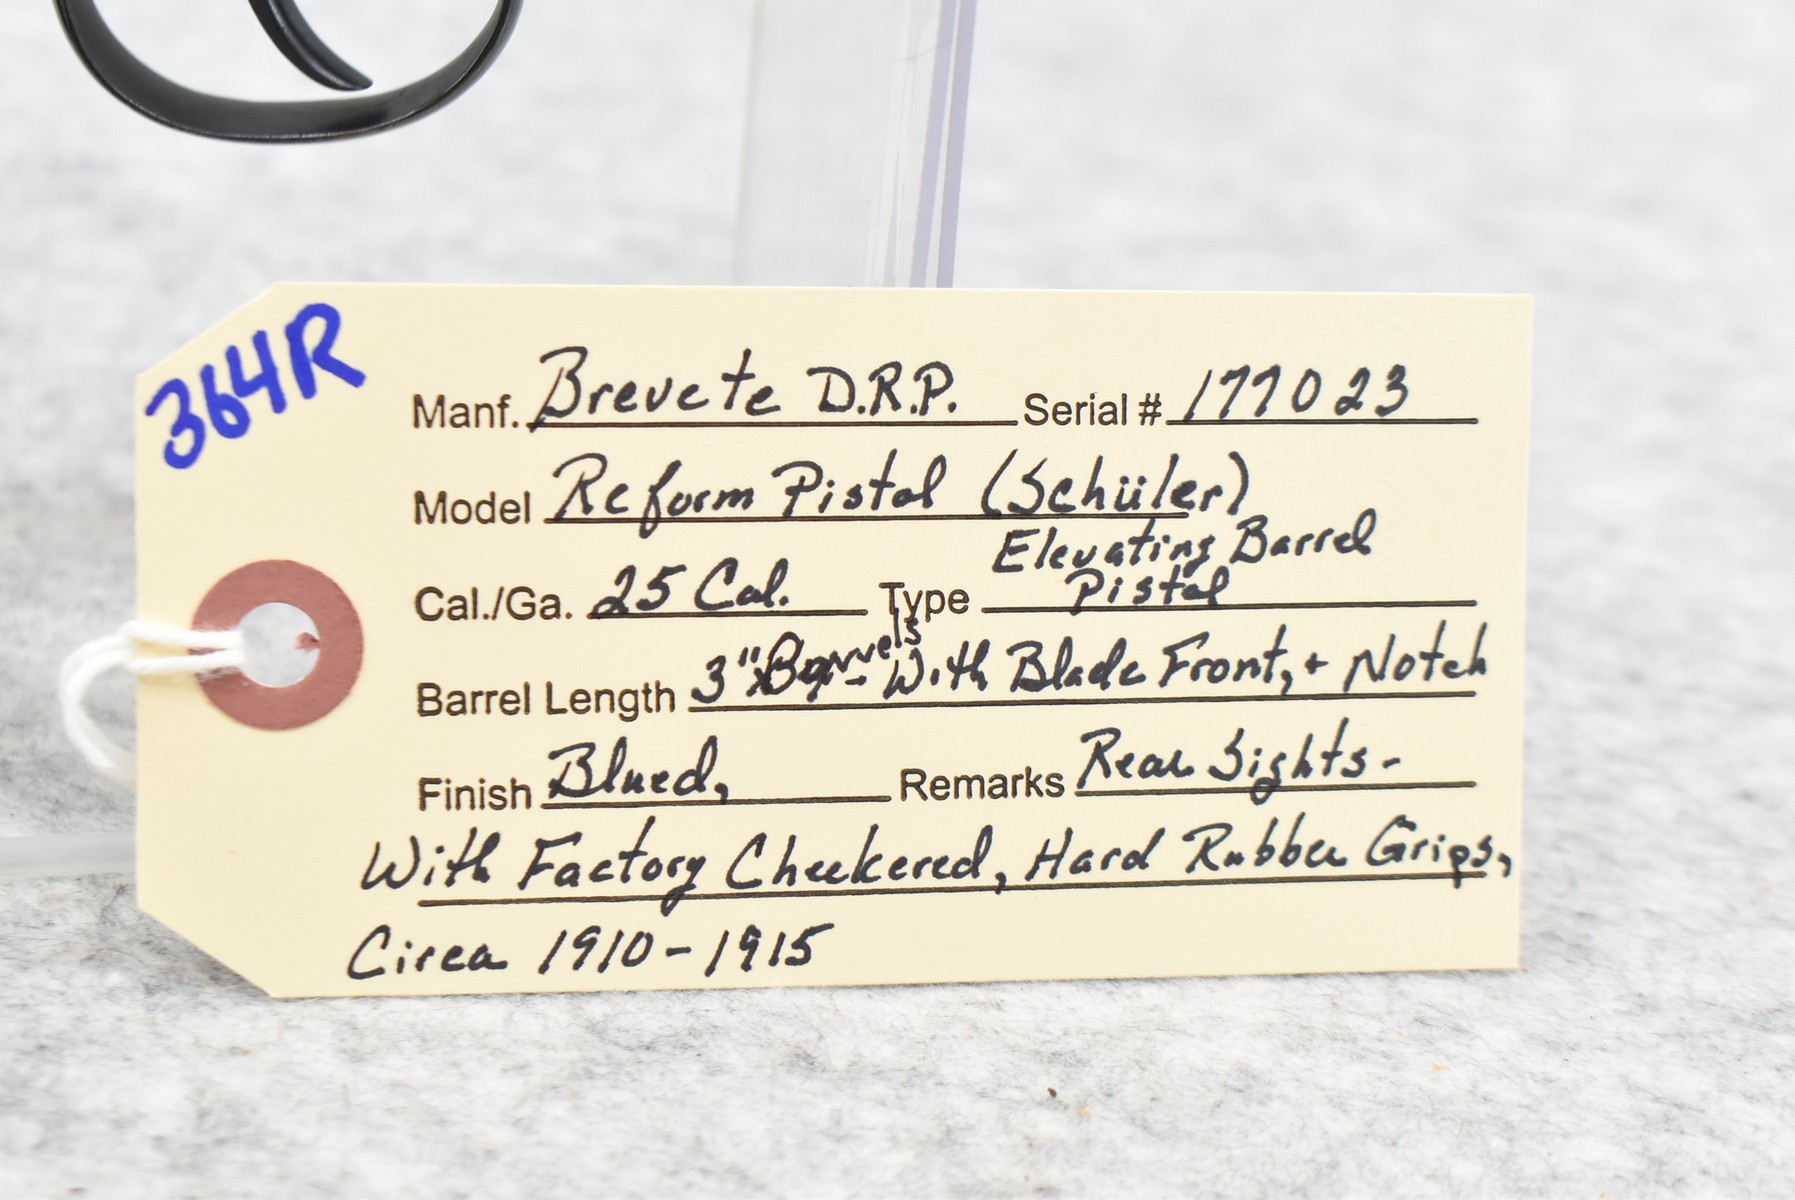 364R
Manf. Brevete D.R.P. Serial # 177023
Model Reform Pistol (Schüler)
Elevating Barrel
Cal./Ga. 25 Cal. Type Pistol
Barrel Length 3" Barrels With Blade Front, + Notch
Finish Blued, Remarks Rear Sights-
With Factory Checkered, Hard Rubber Grips,
Circa 1910-1915